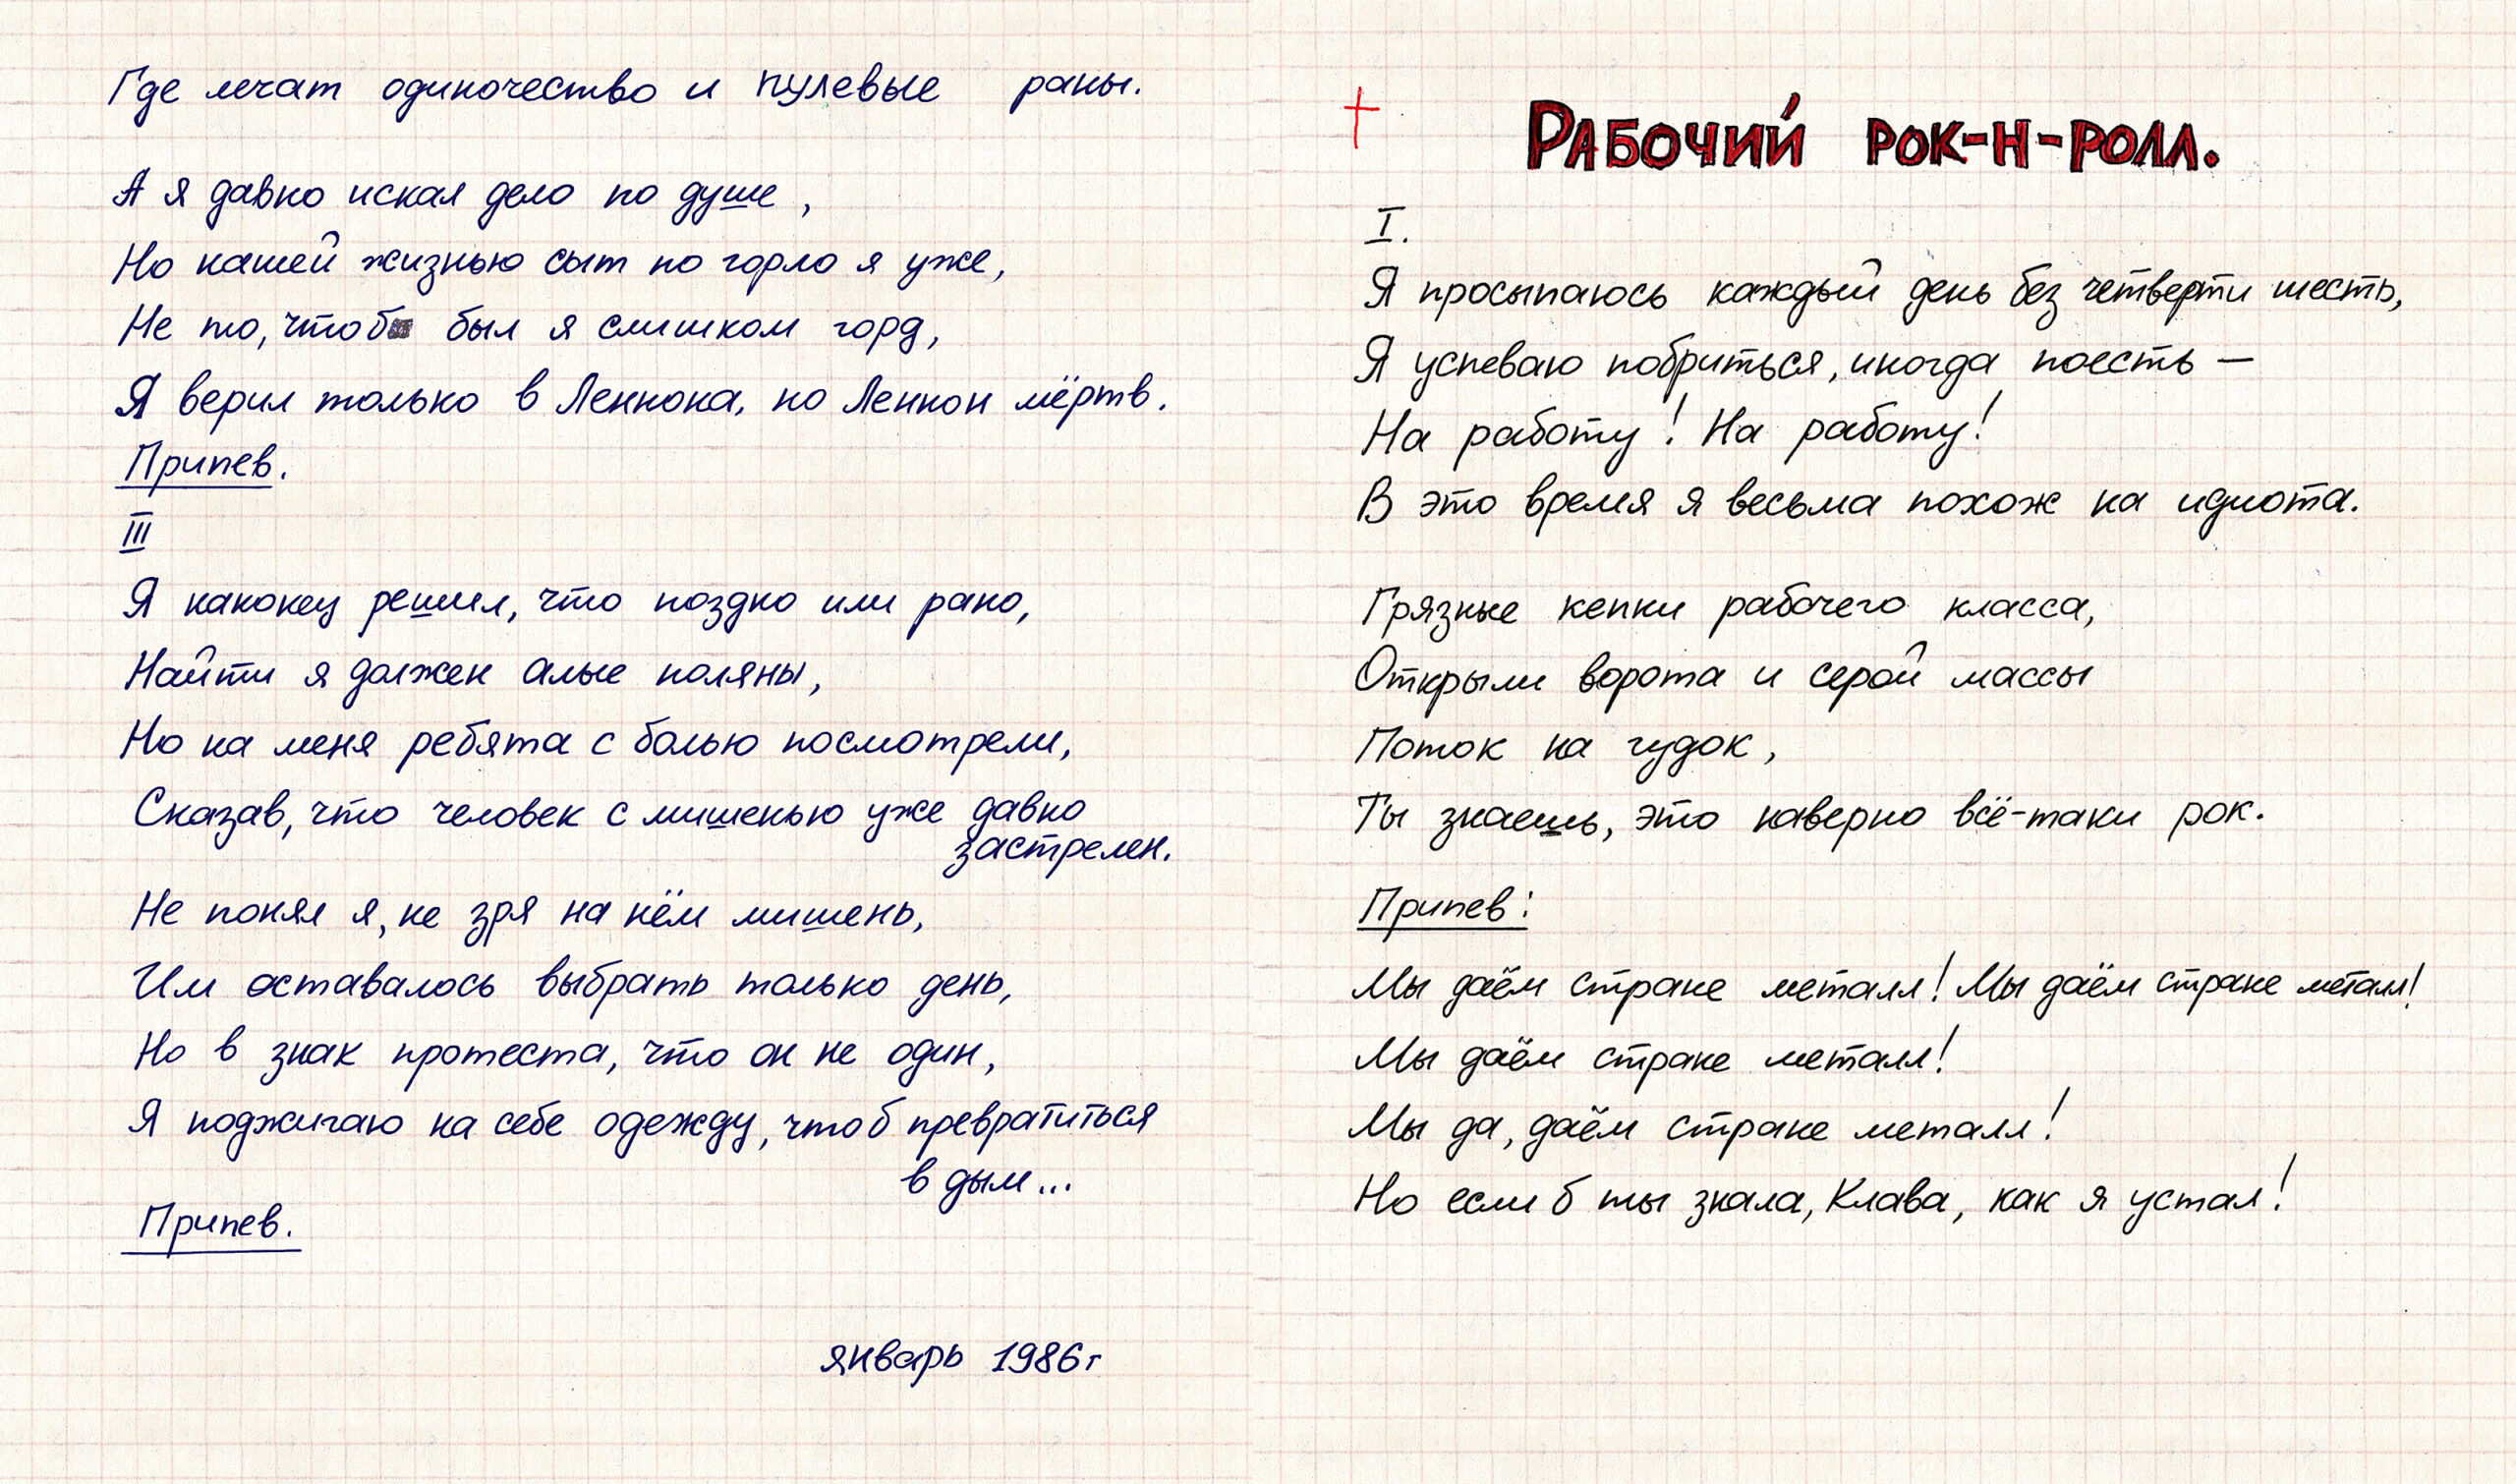 Где лечат одиночество и пулевые раны.
А я давно искал дело по душе,
Но нашей жизнью сыт по горло я уже,
Не то, чтоб был я слишком горд,
Я верил только в Леннона, но Леннон мёртв.
Припев.
III
Я наконец решил, что поздно или рано,
Найти я должен алые поляны,
Но на меня ребята с болью посмотрели,
Сказав, что человек с мишенью уже давно
застрелен.
Не понял я, не зря на нём мишень,
Им оставалось выбрать только день,
Но в знак протеста, что он не один,
Я поджигаю на себе одежду, чтоб превратиться
в дым...
Припев.
январь 1986г
Рабочий рок-н-ролл.
I.
Я просыпаюсь каждый день без четверти шесть,
Я успеваю побриться, иногда поесть —
На работу! На работу!
В это время я весьма похож на идиота.
Грязные кепки рабочего класса,
Открыли ворота и серой массы
Поток на гудок,
Ты знаешь, это наверно всё-таки рок.
Припев:
Мы даём стране металл! Мы даём стране металл!
Мы даём стране металл!
Мы да, даём стране металл!
Но если б ты знала, Клава, как я устал!